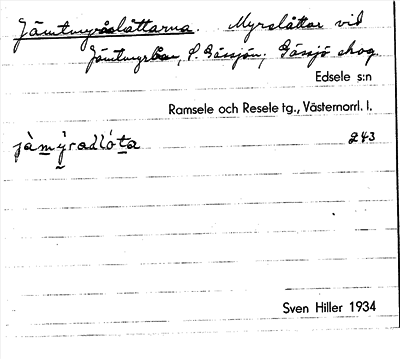 Jämtmyråslåttarna. Myrslåttor vid
Jämtmyråsen, S. Gåssjön, Gåssjö skog.
Edsele s:n
Ramsele och Resele tg., Västernorrl. l.
jämýradlóta 243
Sven Hiller 1934